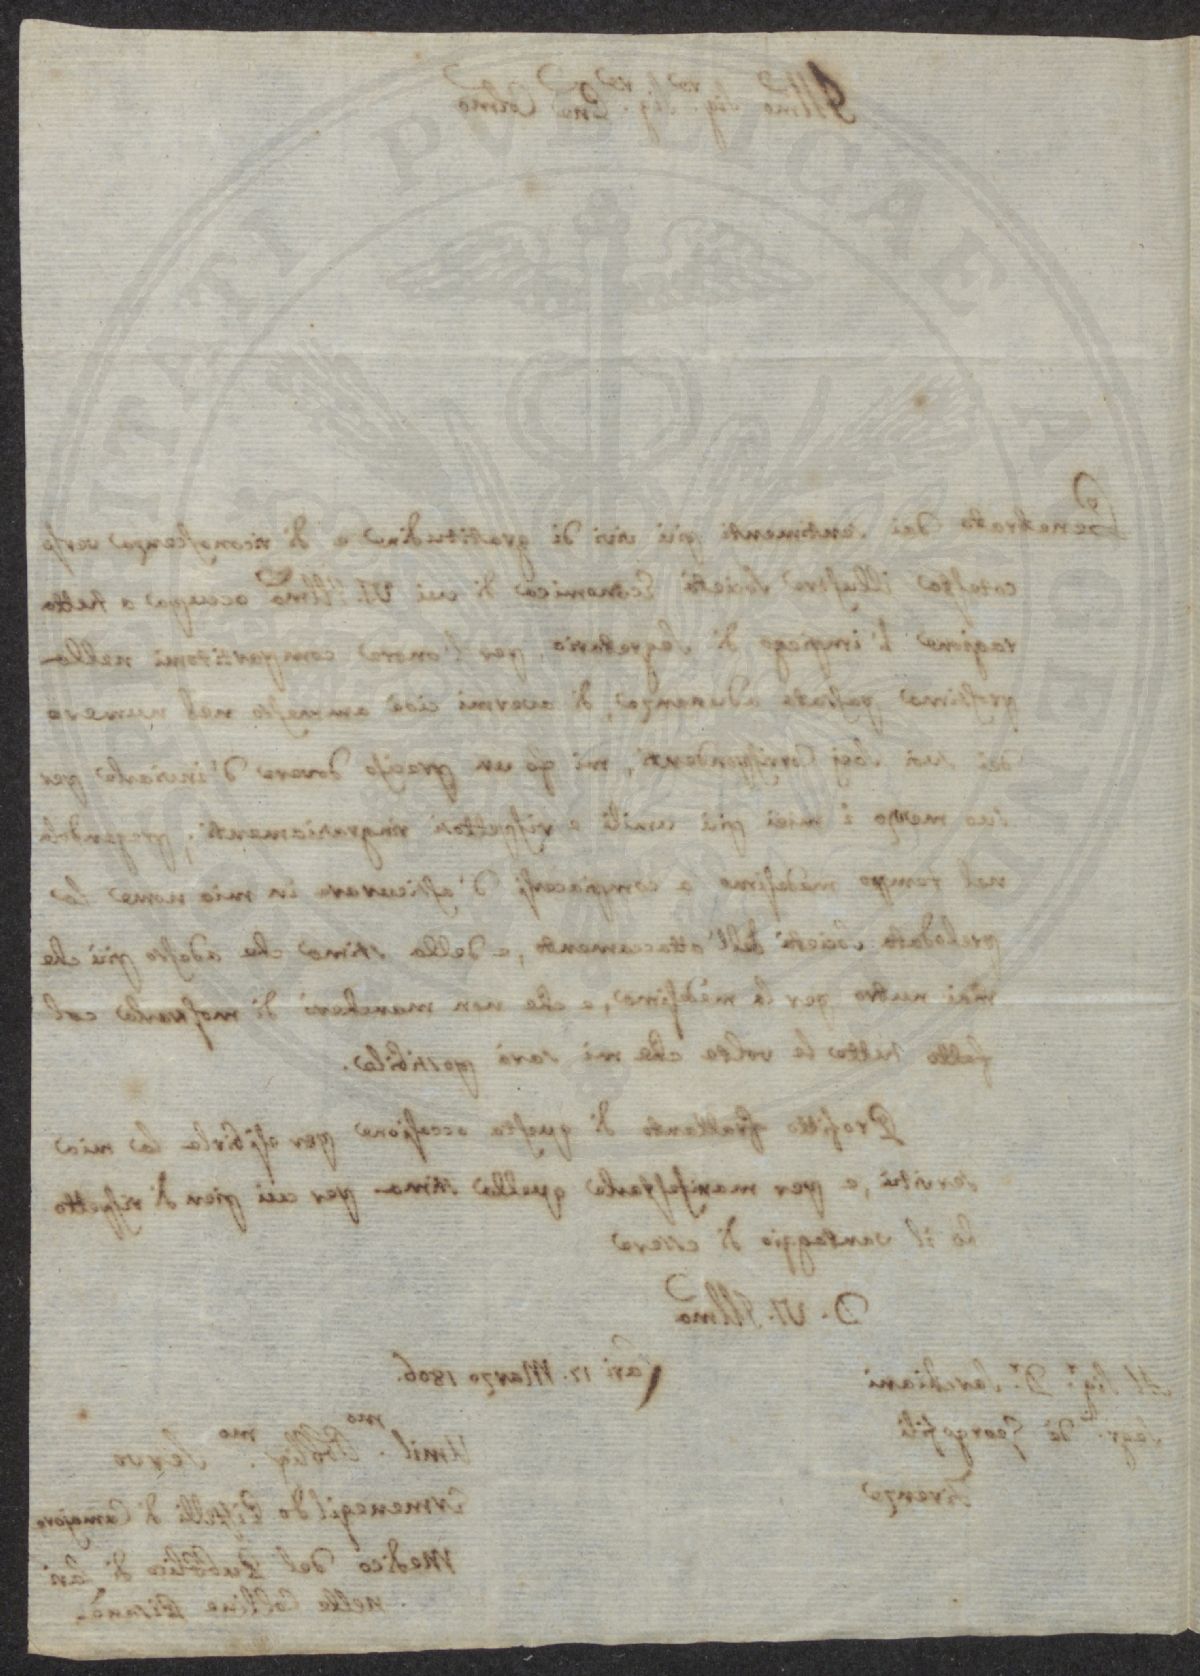 Illmo Sig.re Sig.re Pne Colmo
Penetrato dai sentimenti più vivi di gratitudine e di riconoscenza verso
cotesta illustre Società Economica di cui VS. Illma occupa a tutta
ragione l'impiego di Segretario, per l'onore compartitomi nella
prossima passata adunanza, di avermi cioè ammesso nel numero
dei suoi Socj Corrispondenti, mi fo un preciso dovere d'inviarle per
suo mezzo i miei più umili e rispettosi ringraziamenti; pregandola
nel tempo medesimo a compiacersi d'assicurare in mio nome la
prelodata Società dell'attaccamento, e della stima che adesso più che
mai nutro per la medesima, e che non mancherò di mostrarle col
fatto tutte le volte che mi sarà possibile.
Profitto frattanto di questa occasione per esibirle la mia
servitù, e per manifestarle quella stima per cui pien di rispetto
ho il vantaggio di essere
D. VS. Illma
Lari 12. Marzo 1806.
Al Sig.r D.r Sarchiani
Segr. de Georgofili
Firenze
Umil.mo Obblig.mo Servo
Ermenegildo Pistelli di Camajore
Medico del Pubblico di Lari
nelle Colline Pisane.
PUBLICAE